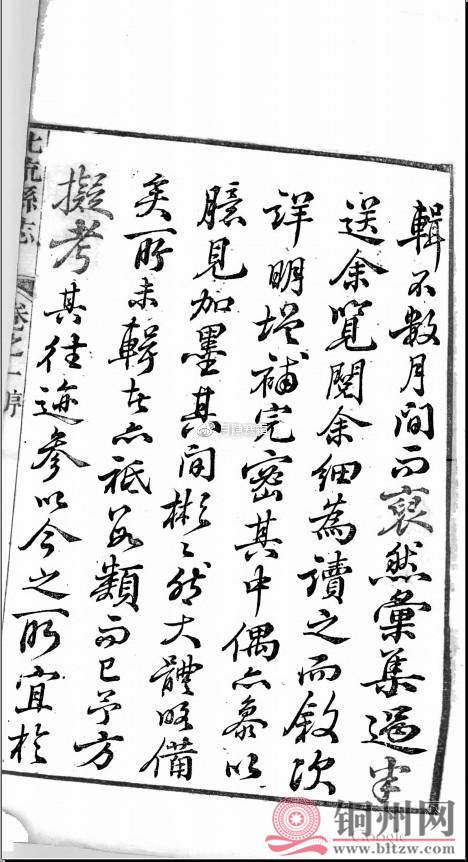 輯不數月間而裒然彙集過半
送余覽閱余細為讀之而敘次
詳明增補完密其中偶亦參以
臆見加墨其間彬〻然大體略備
矣所未輯者亦祗類而已予方
擬考其往迹參以今之所宜於
北流縣志 卷之一序
铜州网
www.bltzw.com